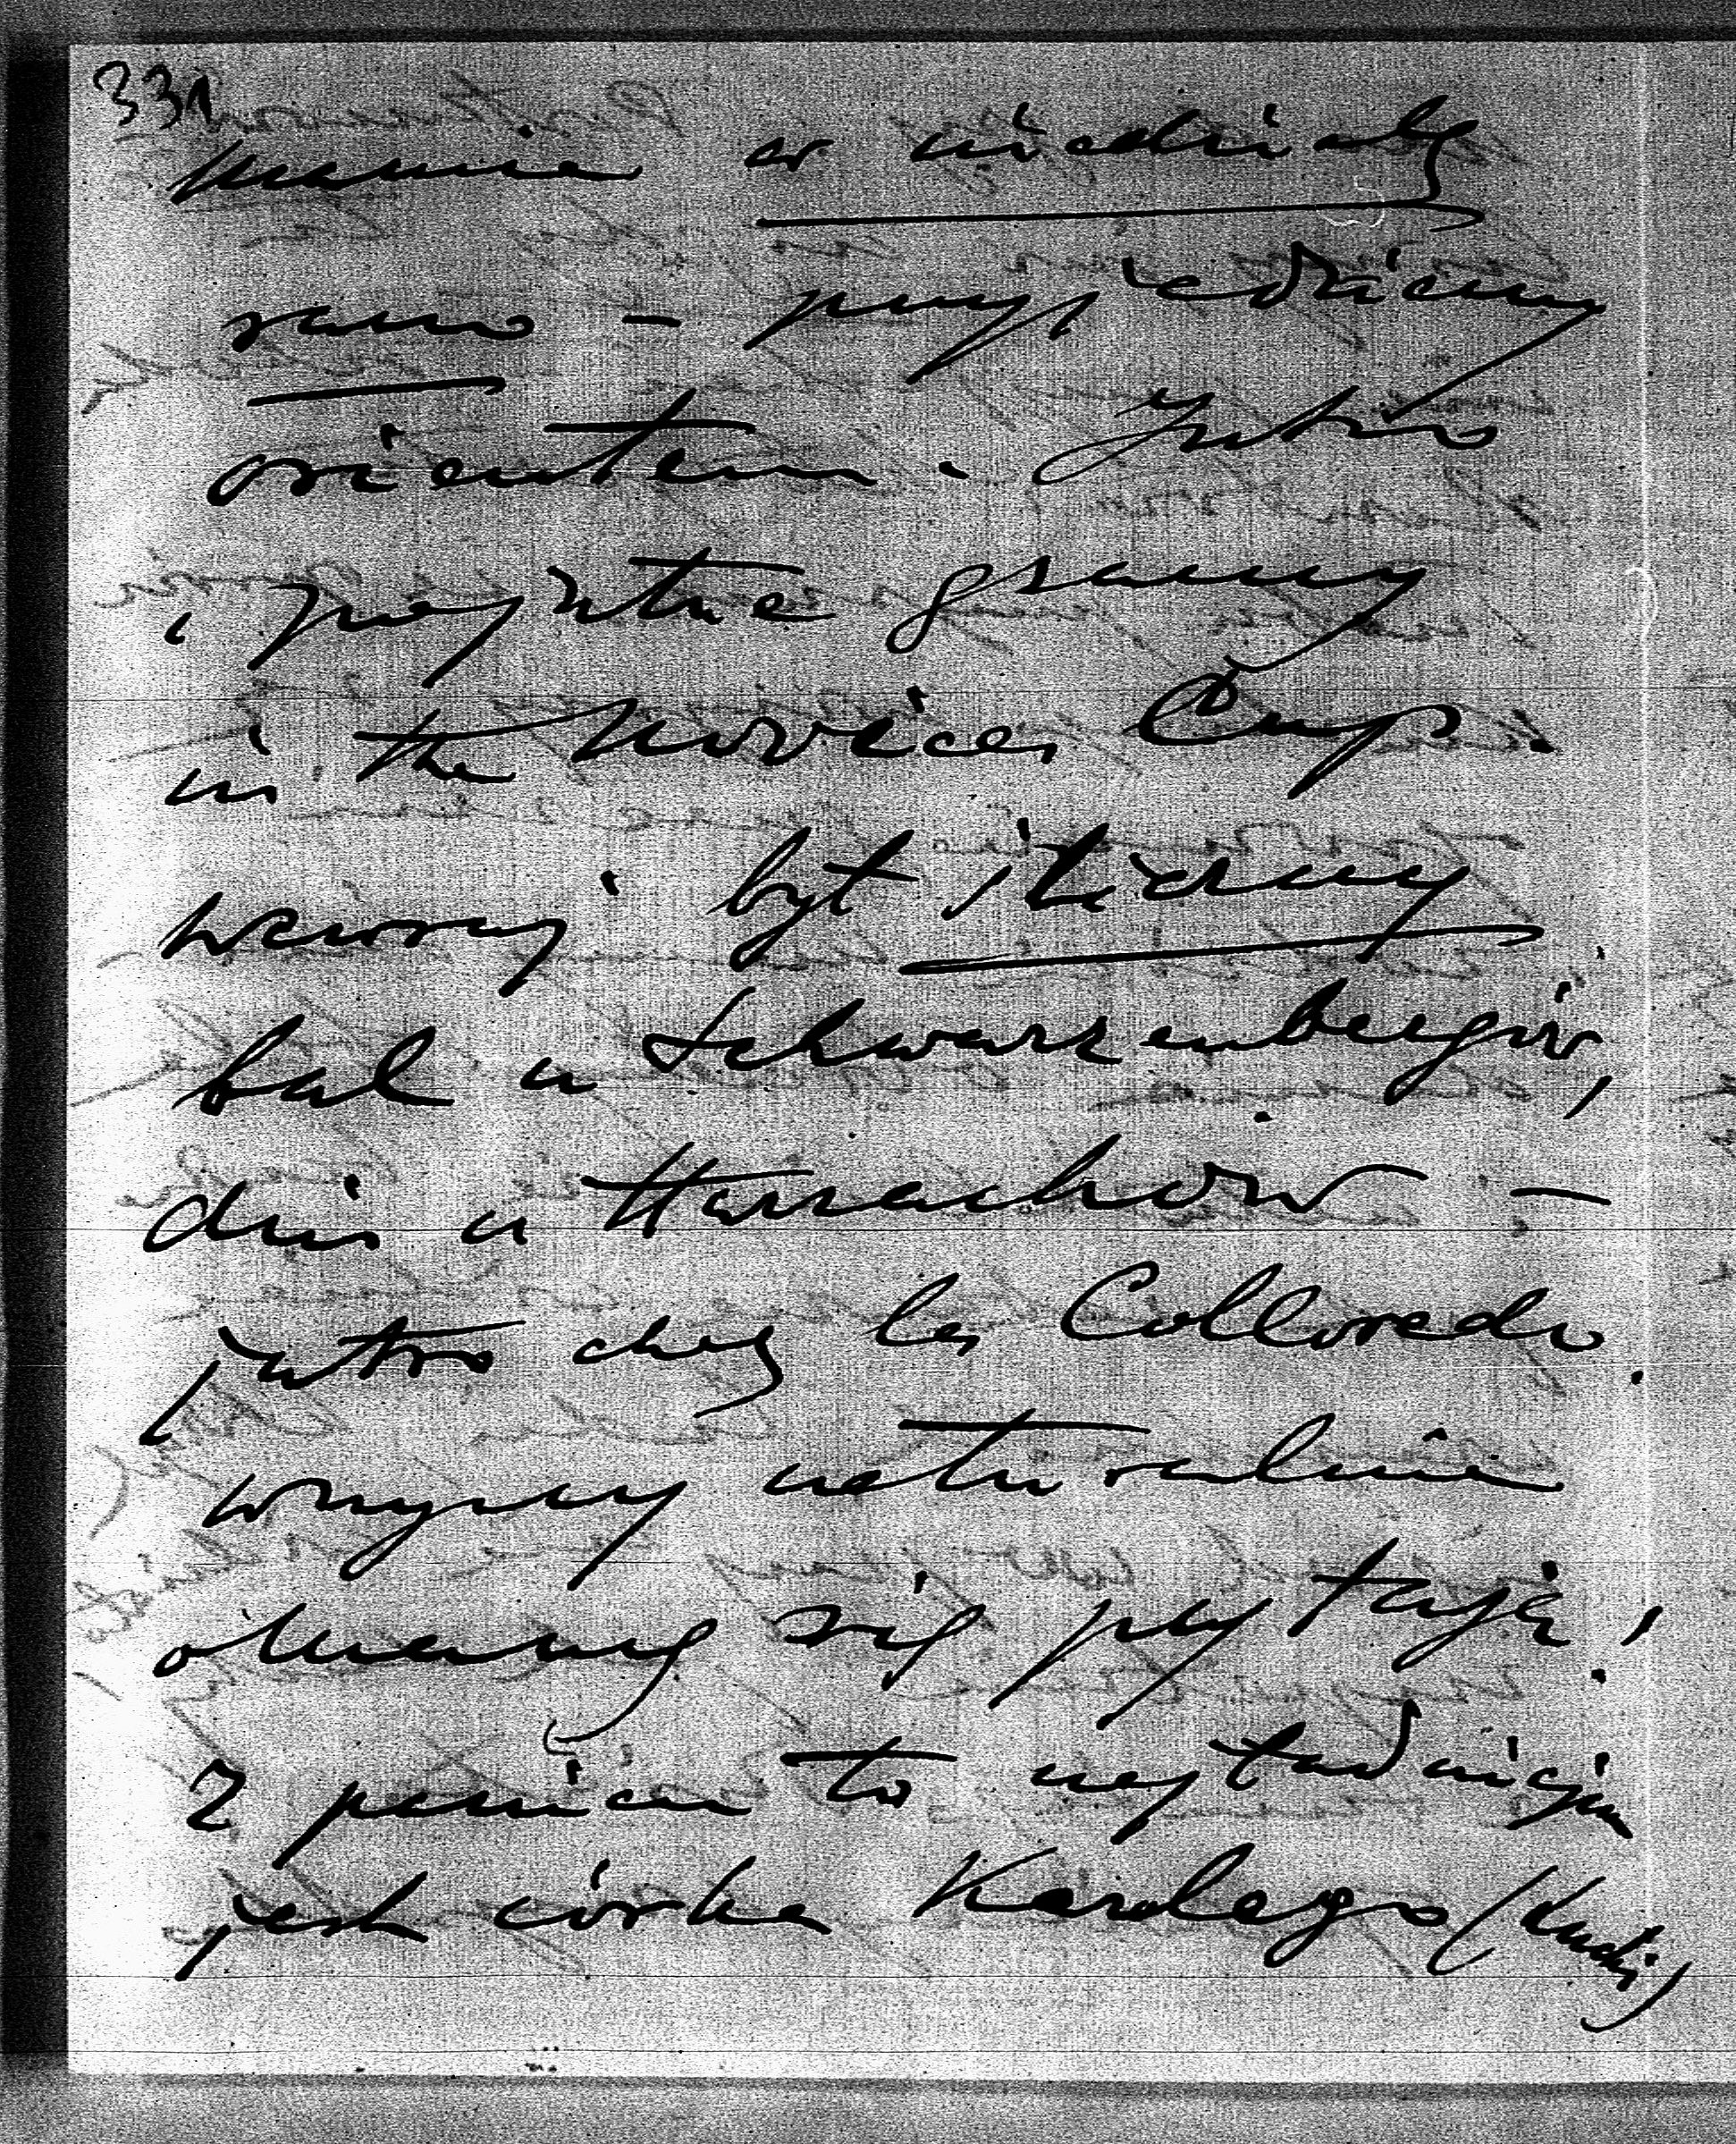 331
mnie w niedzielę
rano – przyjedziemy
orientem. Jutro
i pojutrze gramy
in the Novices Cup.
wczoraj był śliczny
bal u Schwarzenbergów,
dziś u Harrachów –
jutro chez les Colloredo.
wszyscy naturalnie
o Mamę się pytają,
z panien to najładniejsza
jest córka Karolego